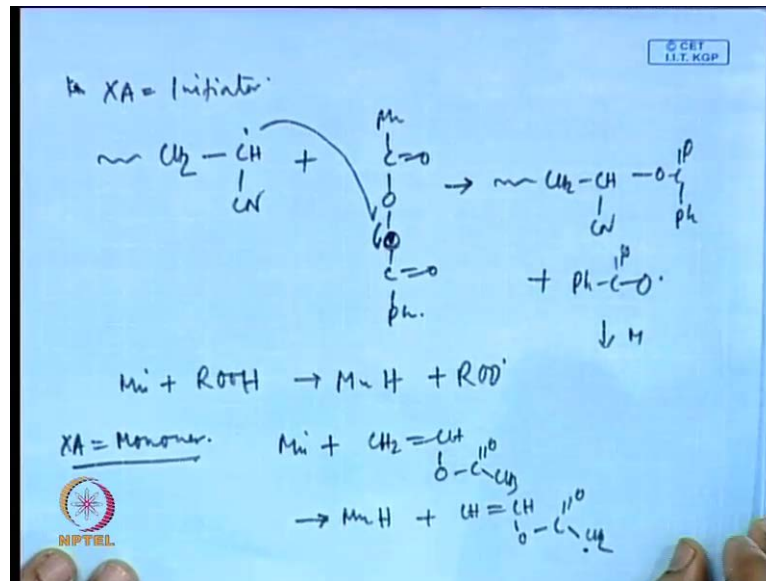 © CET
I.I.T. KGP
XA = Initiator.
CH2 — ĊH + Ph C=O O O C=O Ph. → CH2-CH — O-C O Ph
CN CN
+ Ph-C-O· O
↓ M
Mn· + ROOH → MnH + ROO·
XA = Monomer. Mn· + CH2=CH O-C O CH3
→ MnH + CH=CH O-C O CH2
NPTEL